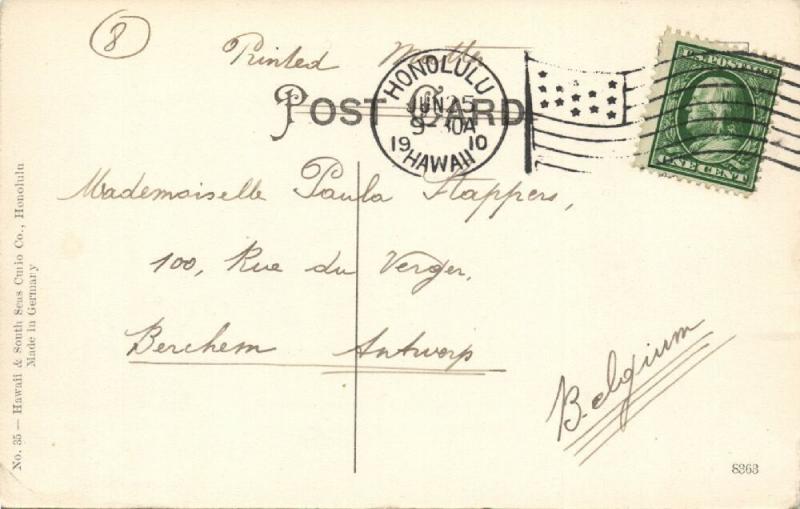 8
Printed Matter
POST CARD
HONOLULU
JUN 25
9 30A
1910
HAWAII
U.S. POSTAGE
ONE CENT
Mademoiselle Paula Stappers,
100, Rue du Verger,
Berchem Antwerp
Belgium
No. 35 — Hawaii & South Seas Curio Co., Honolulu
Made in Germany
8363